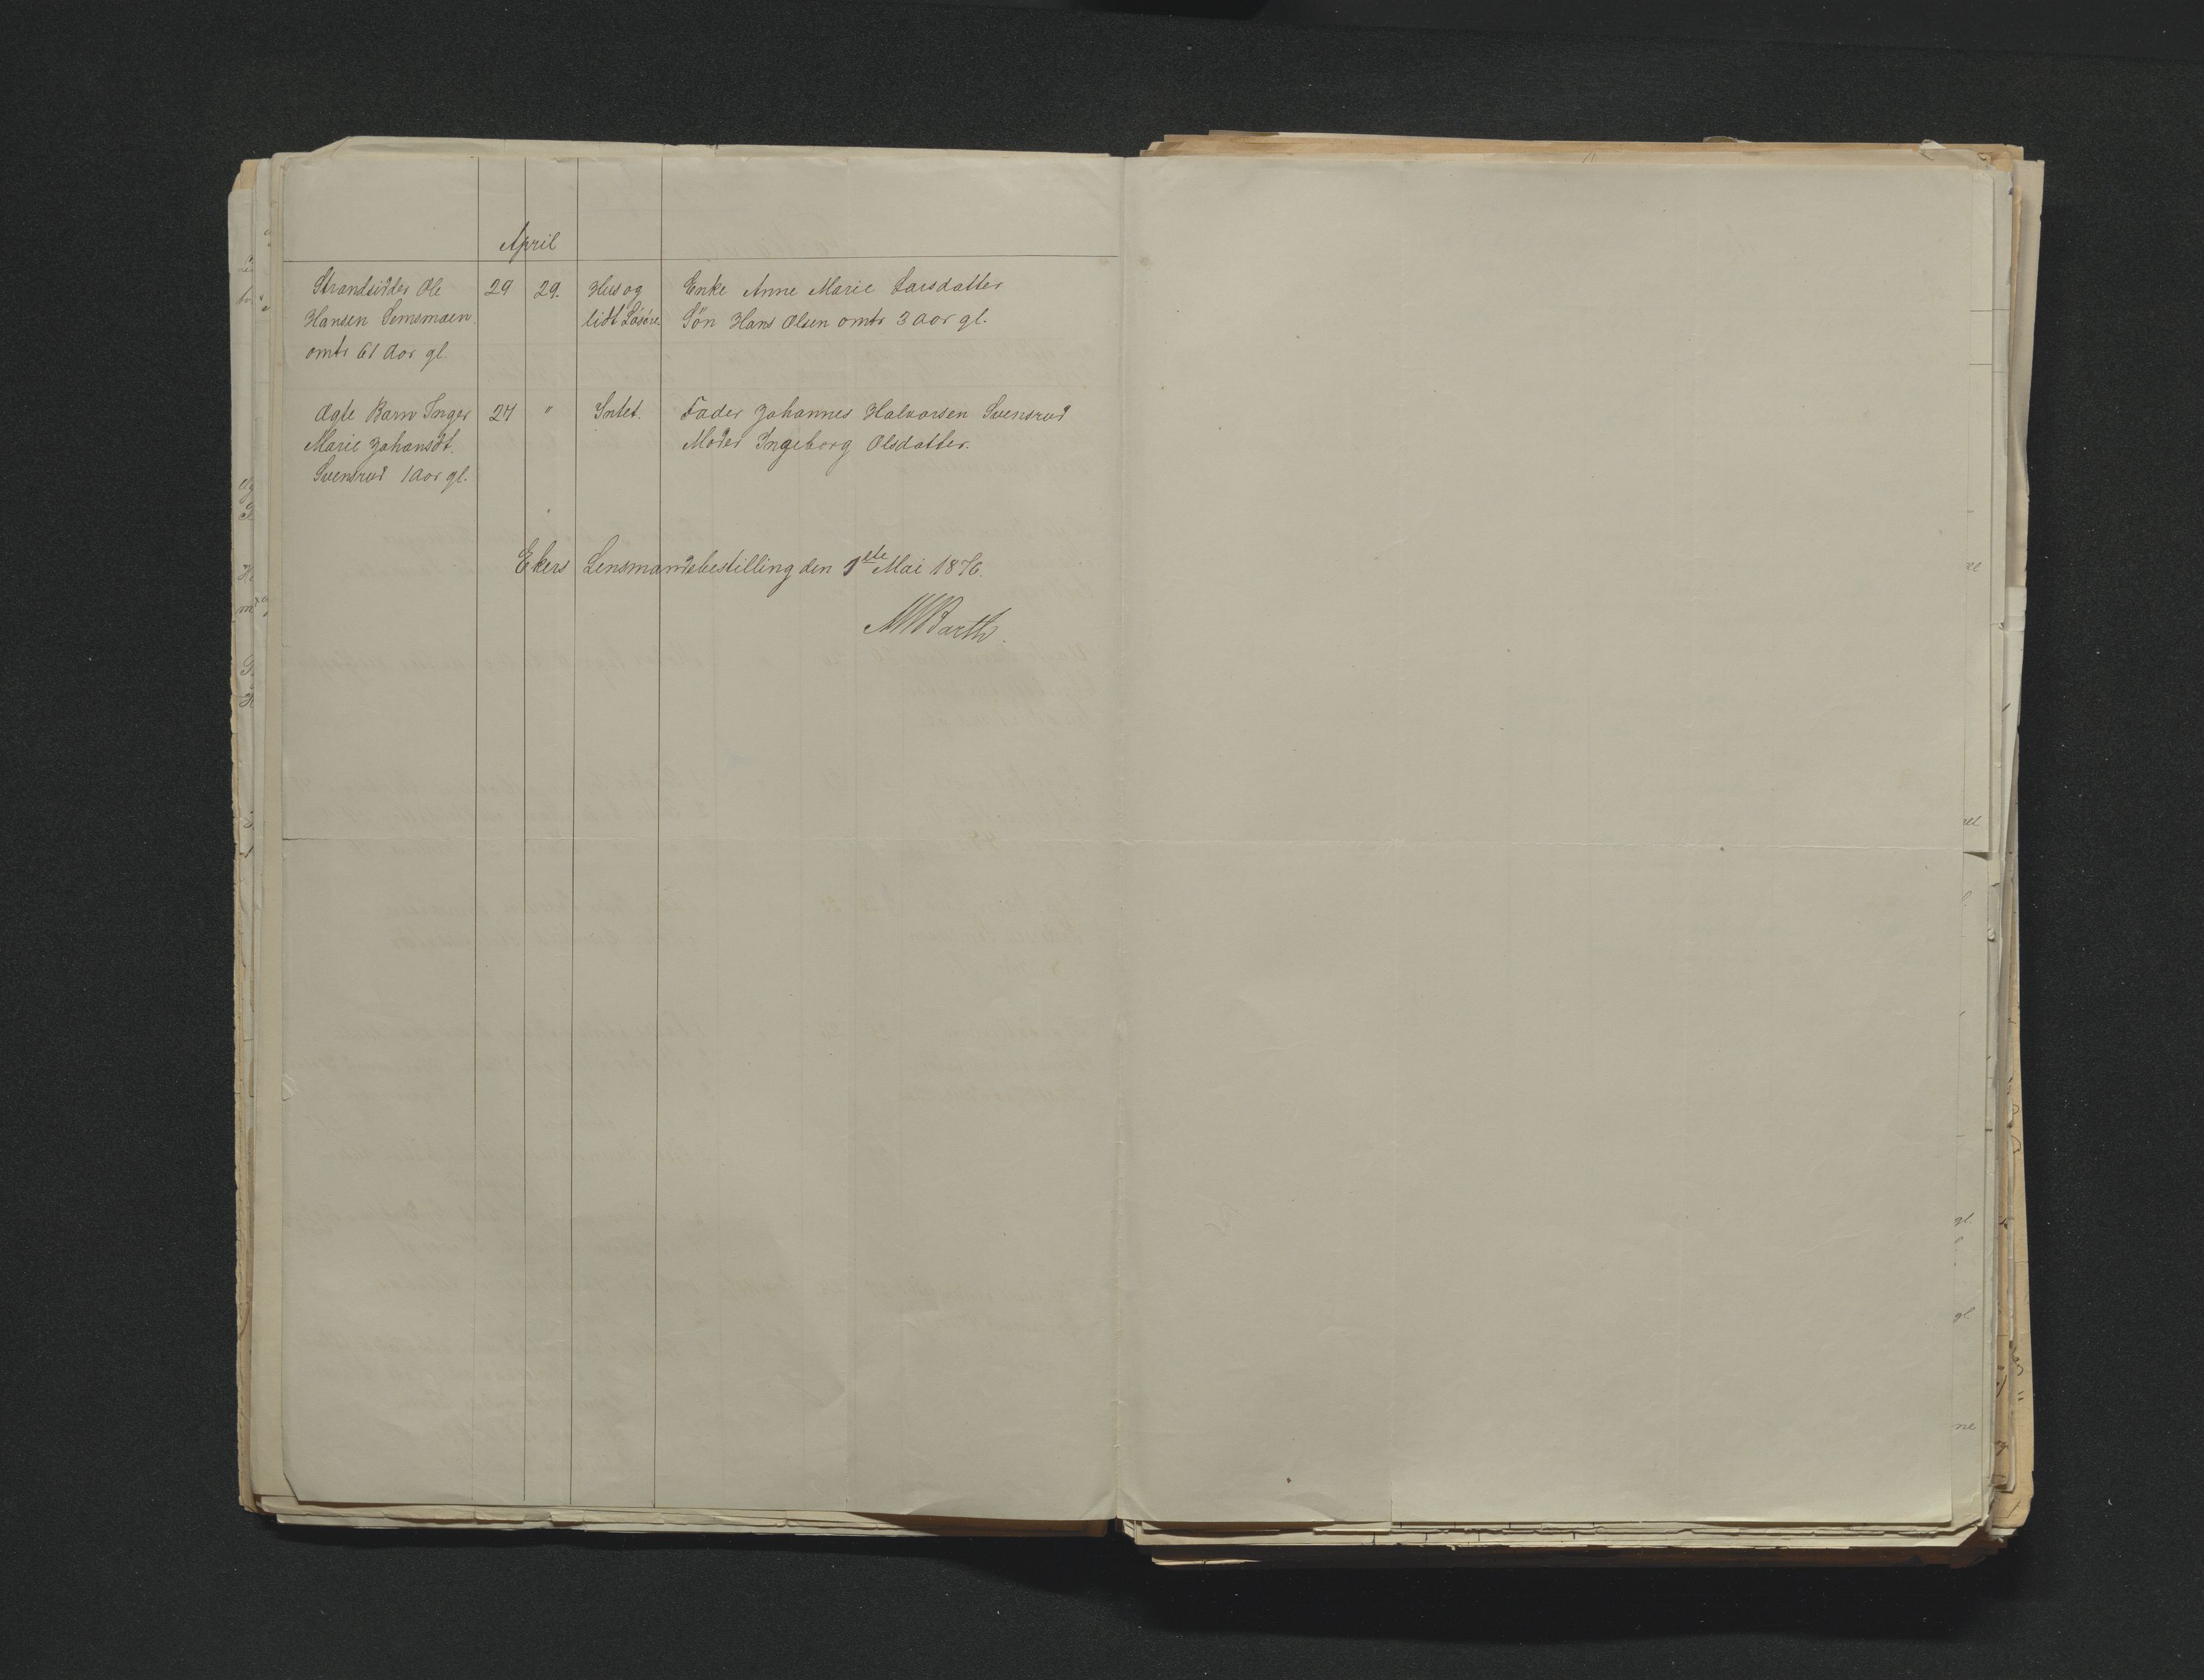 April
Strandsidder Ole 29 29. Hus og Enke Anne Marie Larsdatter
Hansen Semsmoen lidt Løsøre Sön Hans Olsen omtr 3 Aar gl.
omtr 61 Aar gl.
Ægte Barn Inger 27 " Intet. Fader Johannes Halvorsen Svensrud
Marie Johansdt. Moder Ingeborg Olsdatter.
Svensrud 1 Aar gl.
Ekers Lensmandsbestilling den 1ste Mai 1876.
Barth